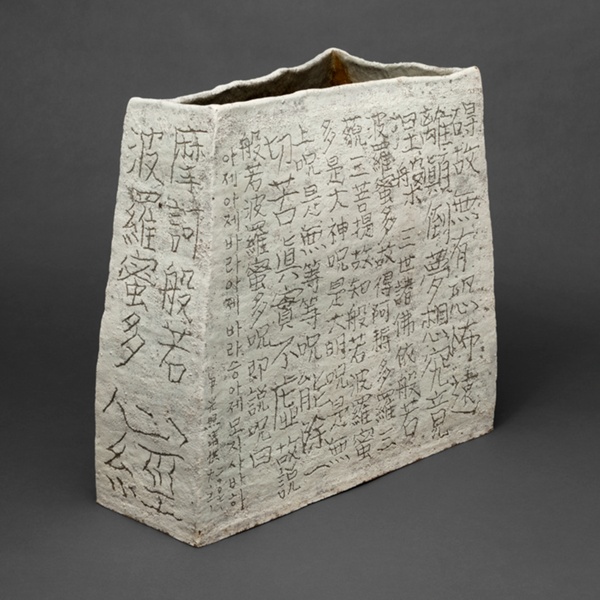 摩訶般若
波羅蜜多
心經
碍故無有恐怖遠
離顚倒夢想究竟
涅槃三世諸佛依般若
波羅蜜多故得阿耨多羅三
藐三菩提故知般若波羅蜜
多是大神呪是大明呪是無
上呪是無等等呪能除一
切苦眞實不虛故說
般若波羅蜜多呪即說呪曰
아제아제바라아제 바라승아제모지사바하